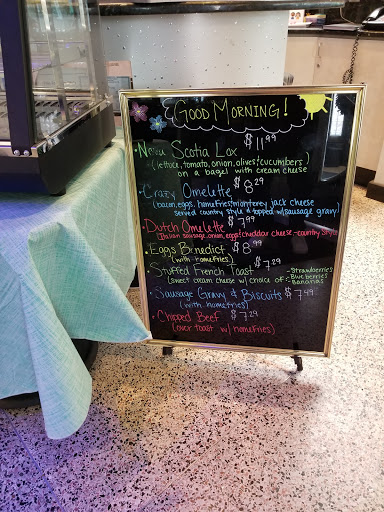 Good Morning!
$11.99
• Nova Scotia Lox
(lettuce, tomato, onion, olives & cucumbers)
on a bagel with cream cheese
• Crazy Omelette $8.29
(bacon, eggs, homefries & monterey jack cheese
served country style & topped w/ sausage gravy)
• Dutch Omelette $7.99
(Italian sausage, onion, eggs & cheddar cheese - country style
• Eggs Benedict $8.99
(with homefries)
• Stuffed French Toast $7.29
(sweet cream cheese w/ choice of - Strawberries
- Blueberries
- Bananas
• Sausage Gravy & Biscuits $7.49
(with homefries)
• Chipped Beef $7.29
(over toast w/ homefries)